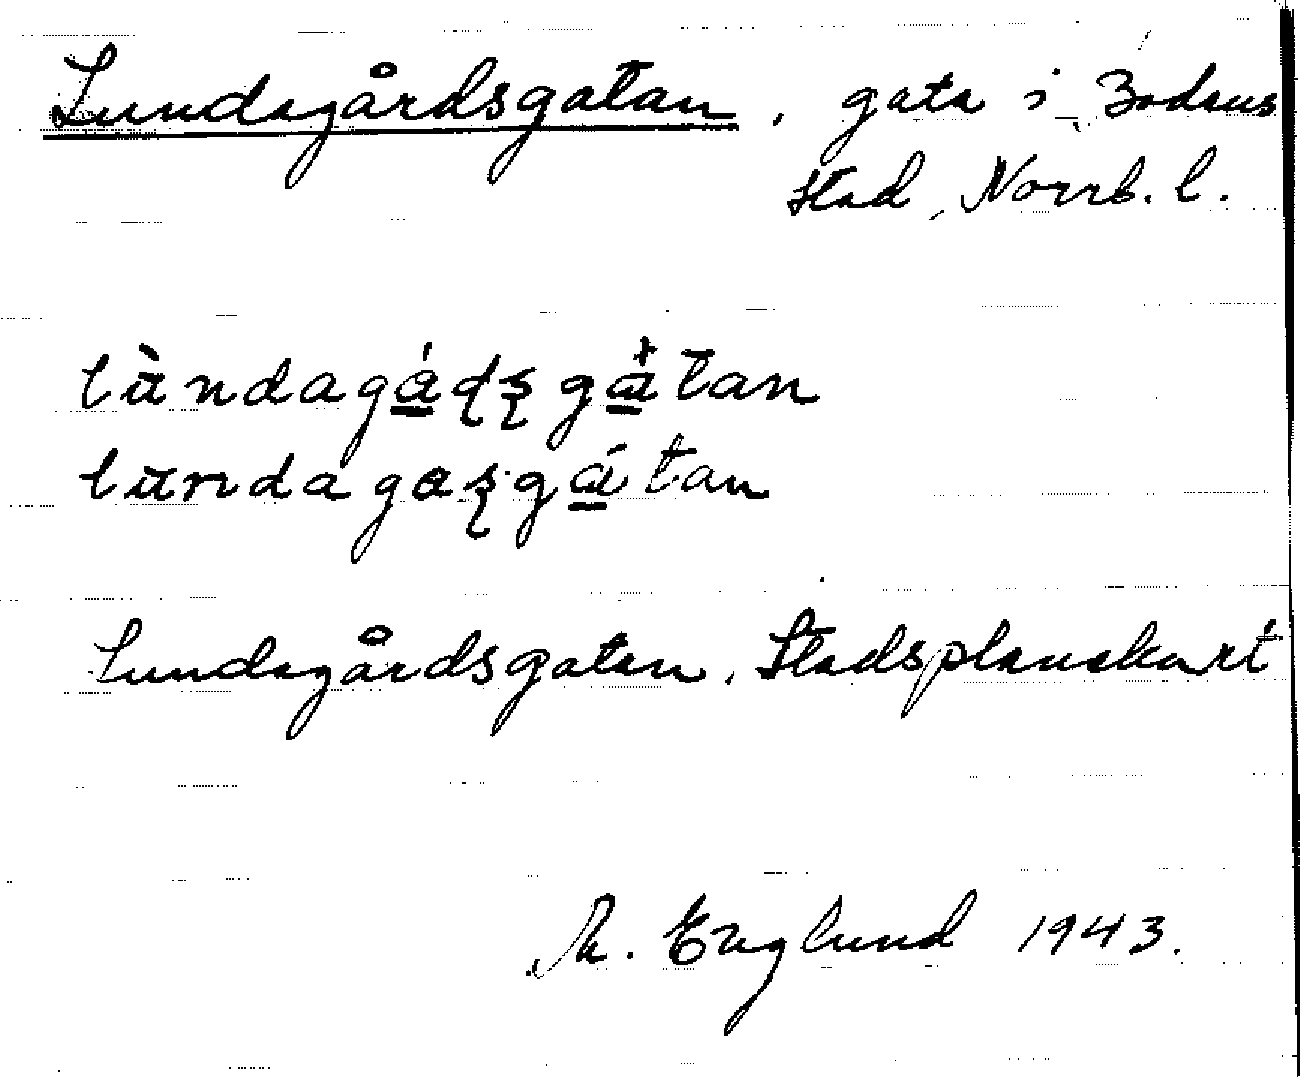 Lundagårdsgatan, gata i Bodens
stad, Norrb. l.
lùndagá̱ɖʂ gà̱tan
lundagaʂgá̱tan
Lundagårdsgatan, Stadsplanekart
M. Englund 1943.